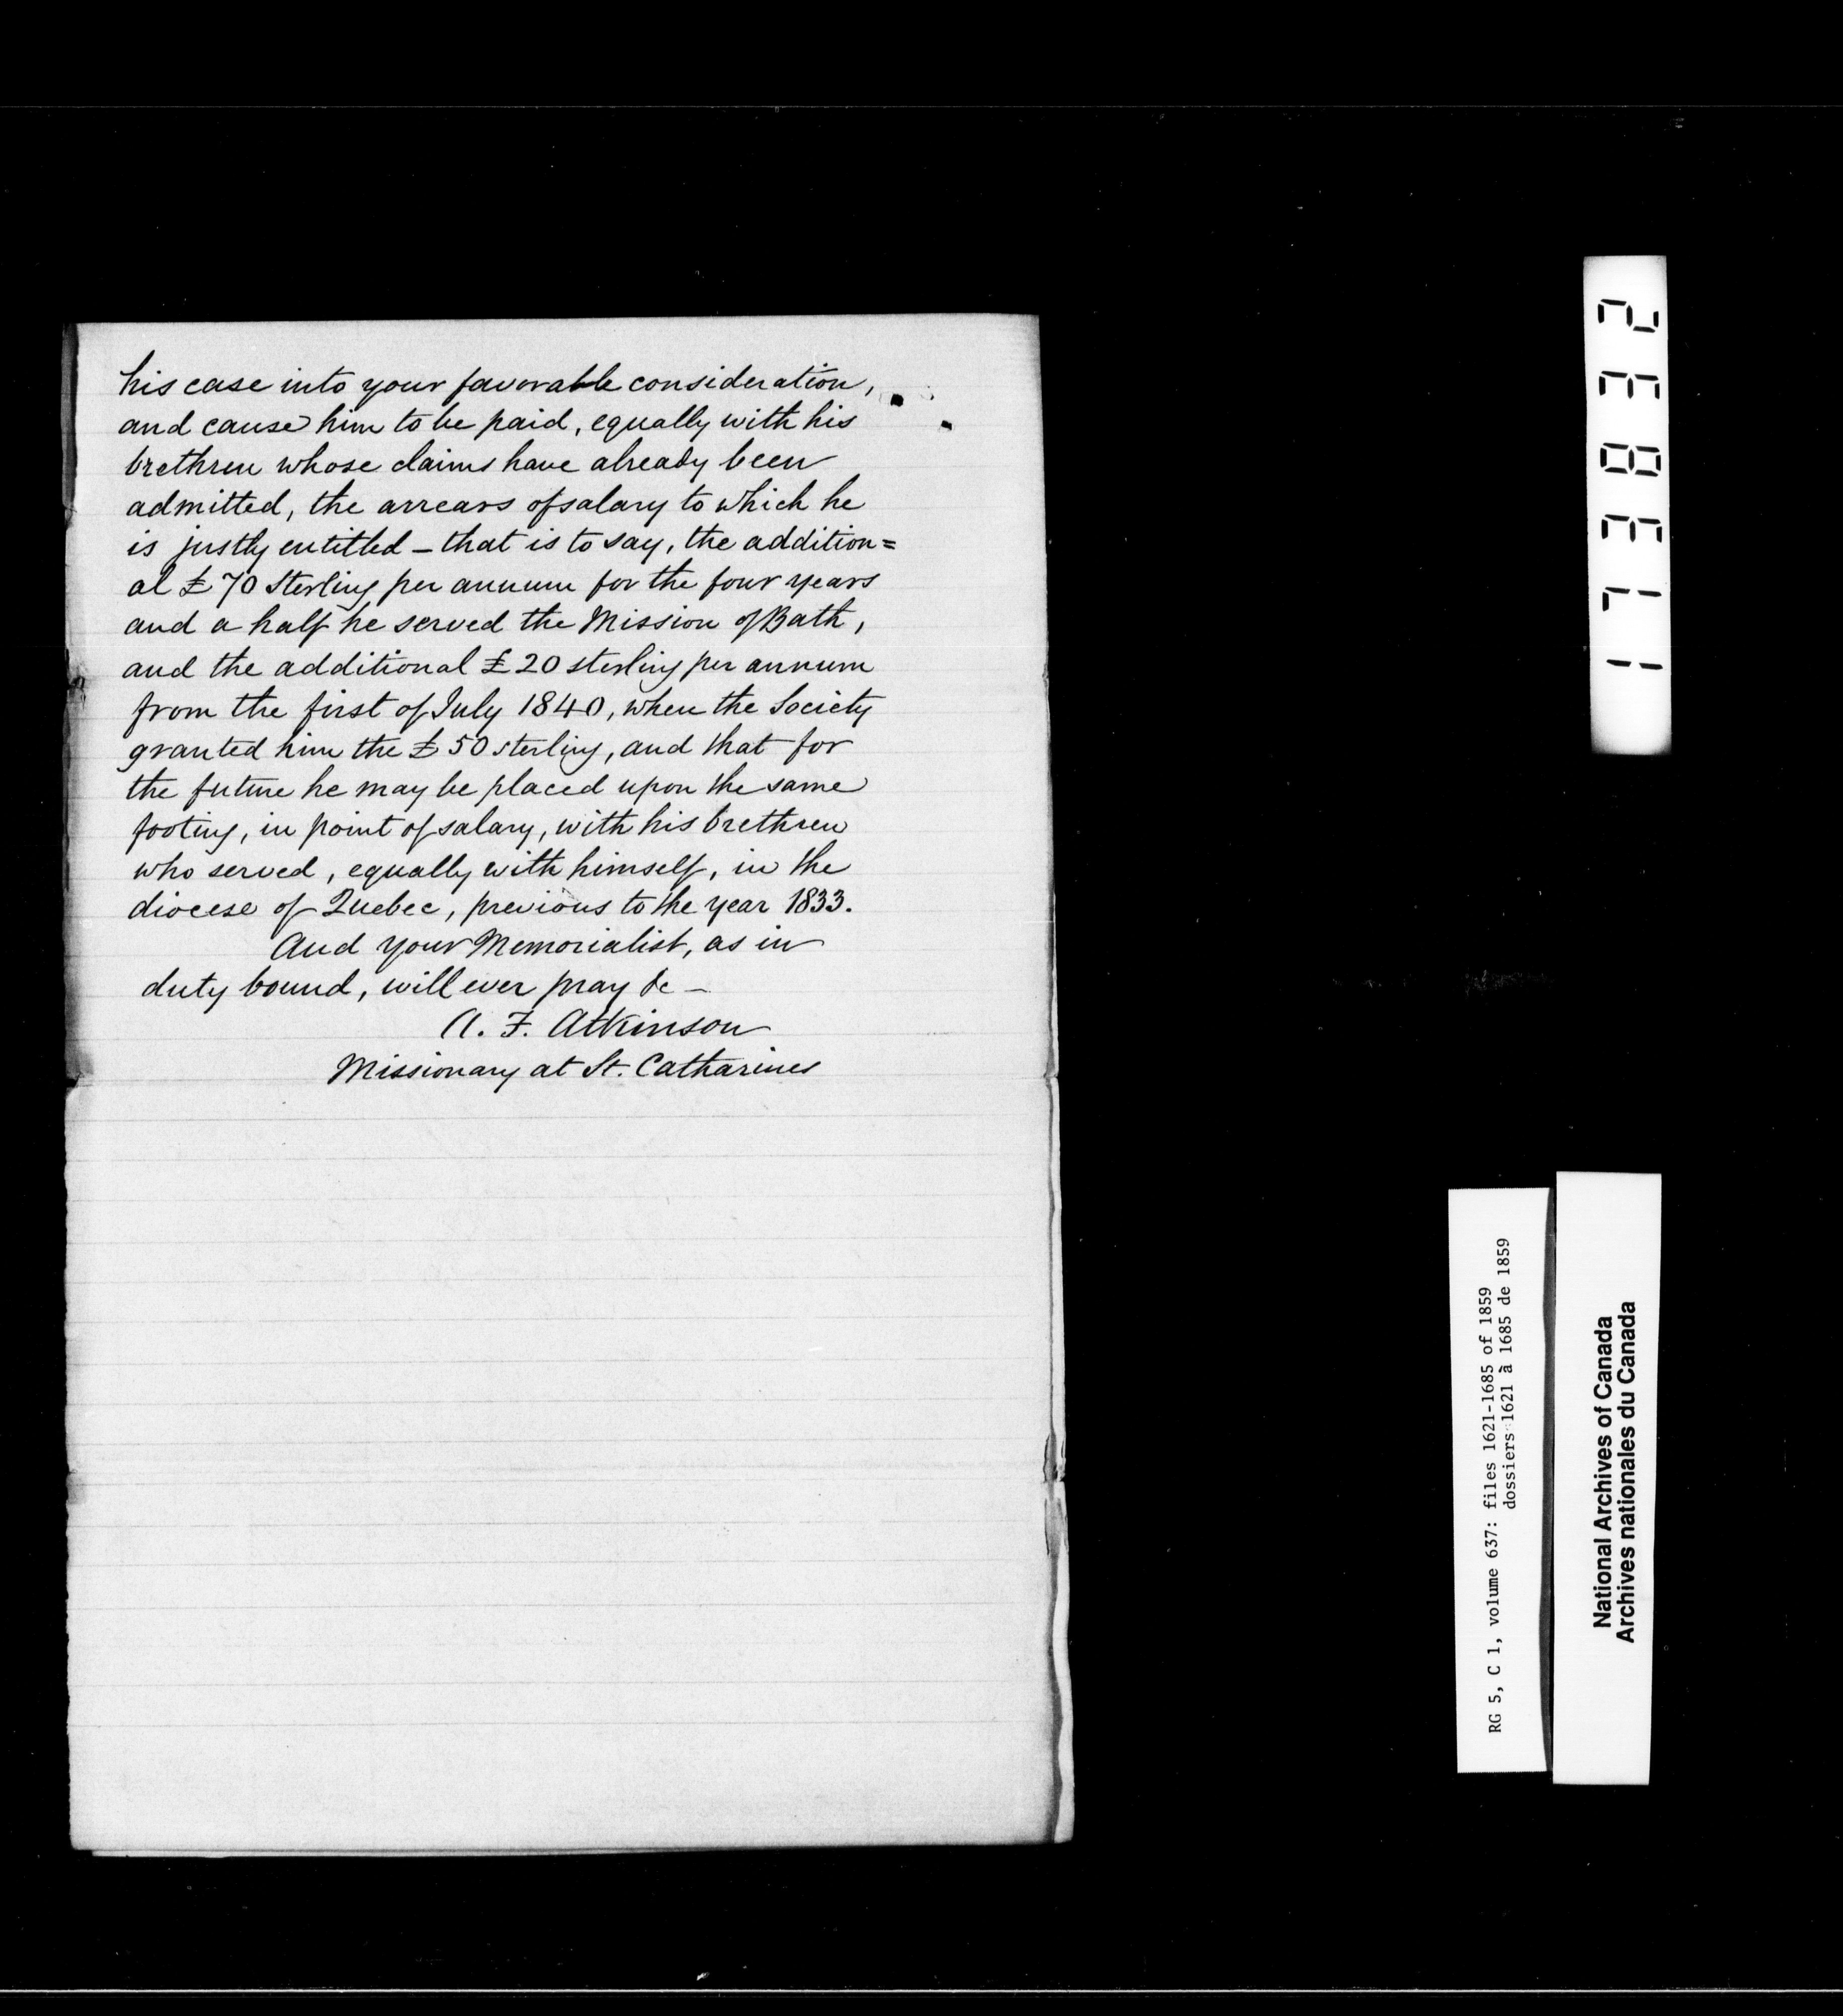 his case into your favorable consideration,
and cause him to be paid, equally with his
brethren whose claims have already been
admitted, the arrears of salary to which he
is justly entitled – that is to say, the addition=
al £70 sterling per annum for the four years
and a half he served the Mission of Bath,
and the additional £20 sterling per annum
from the first of July 1840, when the Society
granted him the £50 sterling, and that for
the future he may be placed upon the same
footing, in point of salary, with his brethren
who served, equally with himself, in the
diocese of Quebec, previous to the year 1833.
And your Memorialist, as in
duty bound, will ever pray &c –
A. F. Atkinson
Missionary at St. Catharines
173832
RG 5, C 1, volume 637: files 1621-1685 of 1859
dossiers 1621 à 1685 de 1859
National Archives of Canada
Archives nationales du Canada